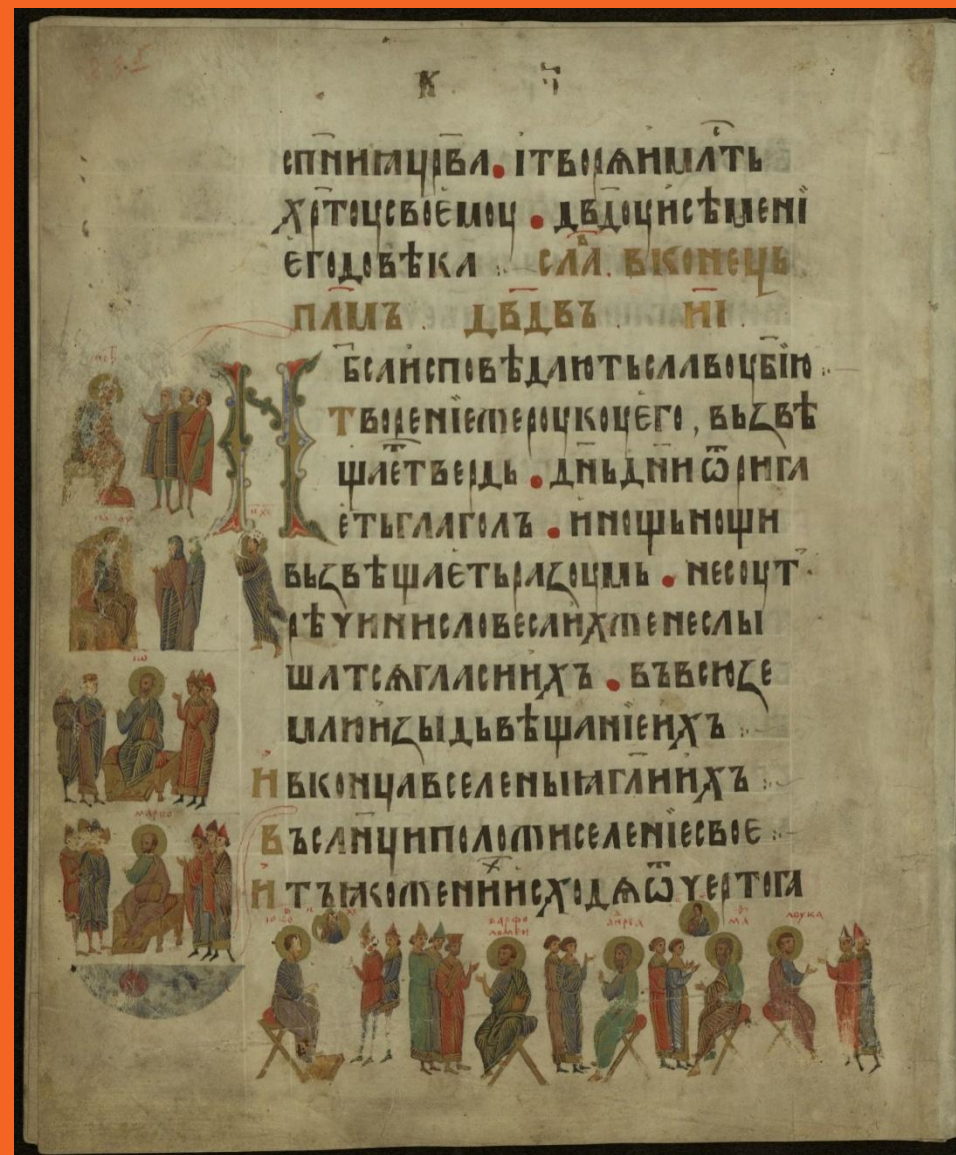 К Ч
сп҃нниꙗцр҃ѣвл. ітворѧнимлⷭ҇ть
хрⷭ҇тоусвоемоу . дв҃доуисѣмені
егодовѣка : сла҃. вконець
пл҃мъ дв҃двъ н҃і
Нб҃саисповѣдаютьславоубж҃ію :
твореніежероукоуего, възвѣ
щаеⷮтвердь . дн҃ьдн҃иѿрига
етьглаголъ . инощьнощи
възвѣщаетьразоумь . несоут
рѣчинисловесаихженеслы
шатсѧгласиихъ . въвсюзе
млюизыдьвѣщаніеихъ :
ивконцавселеныꙗгл҃ииихъ :
Въсл҃нциположиселеніесвое :
итъꙗкоженихисходѧѿчертога
петр
павл
мⷴ хⷭ
іѡ
марко
варфо
ломѣи
анⷣреа
фⷪ
ма
лоука